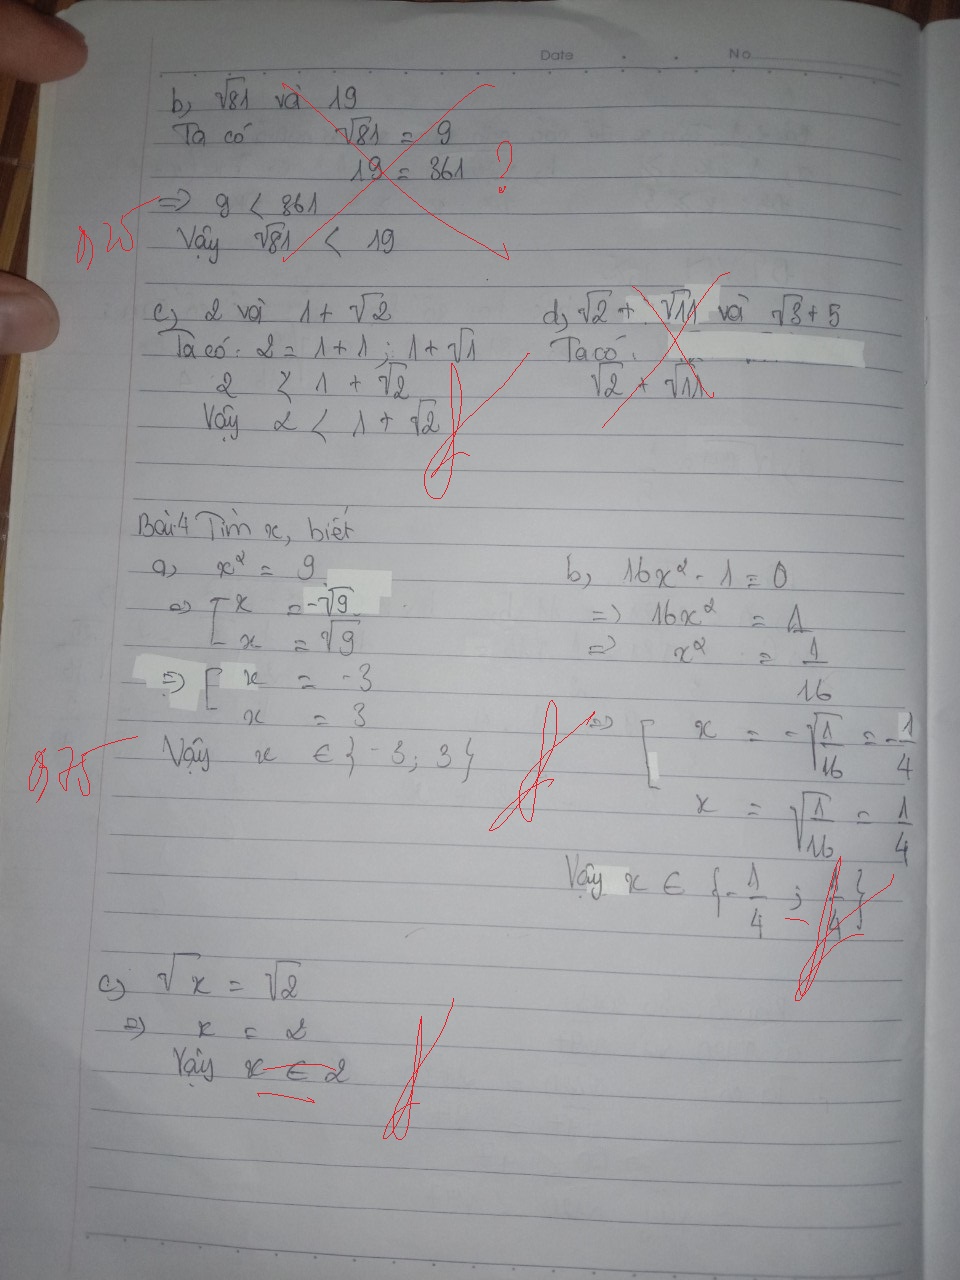 Date . . No
b, √81 và 19
Ta có √81 = 9
19 = 361 ?
=> 9 < 361
0,25
Vậy √81 < 19
c, 2 và 1 + √2
Ta có: 2 = 1 + 1 ; 1 + √1
2 < 1 + √2
Vậy 2 < 1 + √2
d, √2 + √11 và √3 + 5
Ta có:
√2 + √11
Bài 4 Tìm x, biết
a, x² = 9
=> [ x = -√9
x = √9
=> [ x = -3
x = 3
Vậy x ∈ {-3; 3}
0,75
b, 16x² - 1 = 0
=> 16x² = 1
=> x² = 1/16
=> [ x = -√1/16 = -1/4
x = √1/16 = 1/4
Vậy x ∈ {-1/4 ; 1/4}
c, √x = √2
=> x = 2
Vậy x ∈ 2